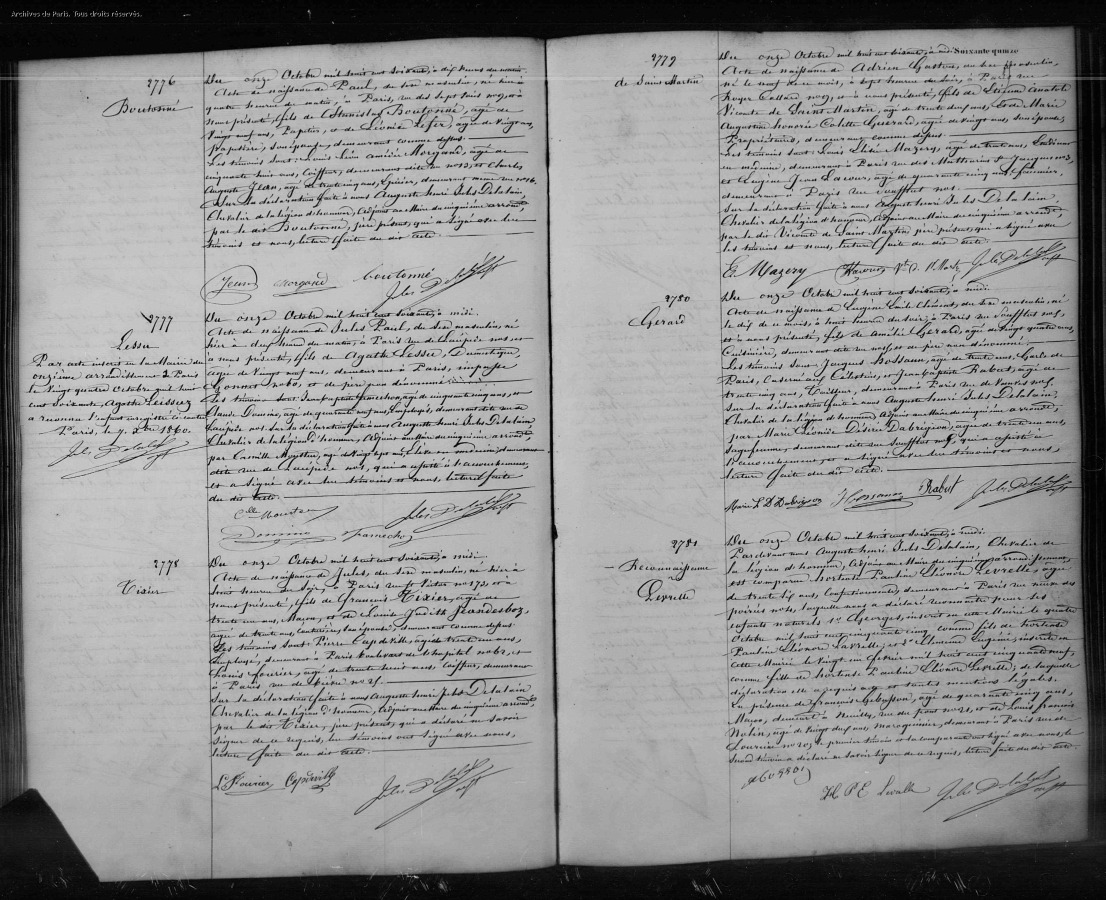 Archives de Paris. Tous droits réservés.
2776
Boutonné
Du onze Octobre mil huit cent soixante, à dix heures du matin.
Acte de naissance de Paul, du sexe masculin, né hier à
quatre heures du matin, à Paris, rue des Sept Voies n° 9, et à
nous présenté, fils de Stanislas Boutonné, âgé de
vingt neuf ans, Papetier, et de Léonie Lefer, âgée de vingt ans,
Papetière, son épouse, demeurant comme dessus.
Les témoins sont: Louis Léon Amédée Morgand, âgé de
cinquante huit ans, Coiffeur, demeurant dite rue n° 13, et Charles
Auguste Jean, âgé de trente cinq ans, Épicier, demeurant même rue n° 16.
Sur la déclaration faite à nous Auguste Henri Jules Delalain,
Chevalier de la Légion d'honneur, Adjoint au Maire du cinquième arrond.t,
par le dit Boutonné, père présent, qui a signé avec les
témoins et nous, lecture faite du dit acte.
Jean Morgand boutonné Jules Delalain
2777
Lessu
Par acte inscrit en la Mairie du
onzième arrondissement de Paris
le vingt quatre Octobre mil huit
cent soixante, Agathe
a reconnu l'enfant enregistré ci-contre
Paris, le 7 Xbre 1860.
Jules Delalain
Du onze Octobre mil huit cent soixante, à midi.
Acte de naissance de Jules Paul, du sexe masculin, né
hier à neuf heures du matin, à Paris rue de Lacépède n° 5, et
à nous présenté, fils de Agathe Lessu, Domestique,
âgée de vingt neuf ans, demeurant à Paris, impasse
n° 60, et de père non dénommé.
Les témoins sont Jean Baptiste Framechon, âgé de cinquante cinq ans, et
Claude Domino, âgé de quarante neuf ans, Employés, demeurant dite rue de
Lacépède n° 5. Sur la déclaration faite à nous Auguste Henri Jules Delalain
Chevalier de la Légion d'honneur, Adjoint au Maire du cinquième arrond.t,
par Camille Moutier, âgé de vingt sept ans, élève en médecine, demeurant
dite rue de Lacépède n° 5, qui a assisté à l'accouchement,
et a signé avec les témoins et nous, lecture faite
du dit acte.
C.lle Moutier Jules Delalain
Domino Framechon
2778
Tixier
Du onze Octobre mil huit cent soixante, à midi.
Acte de naissance de Jules, du sexe masculin, né hier à
huit heures du soir, à Paris rue St Victor n° 173, et à
nous présenté, fils de François Tixier, âgé de
trente un ans, Maçon, et de Louise Judith Jeandesboz,
âgée de trente ans, Couturière, son épouse, demeurant comme dessus.
Les témoins sont Pierre Capdeville, âgé de trente un ans,
Employé, demeurant à Paris boulevart de l'hopital n° 63, et
Louis Fourier, âgé de trente huit ans, Coiffeur, demeurant
à Paris rue de Bièvre n° 25.
Sur la déclaration faite à nous Auguste Henri Jules Delalain
Chevalier de la Légion d'honneur, Adjoint au Maire du cinquième arrond.t,
par le dit Tixier, père présent, qui a déclaré ne savoir
signer de ce requis, les témoins ont signé avec nous,
lecture faite du dit acte.
L. Fourier Capdeville Jules Delalain
Soixante quinze
2779
de Saint Martin
Du onze Octobre mil huit cent soixante, à midi.
Acte de naissance de Adrien Gaston, du sexe masculin,
né le neuf de ce mois, à sept heures du soir, à Paris rue
Royer Collard n° 9, et à nous présenté, fils de Étienne Anatole
Vicomte de Saint Martin, âgé de trente deux ans, et de Marie
Augustine Honorée Colette Guérard, âgée de vingt ans, son épouse,
Propriétaires, demeurant comme dessus.
Les témoins sont Louis Élisée Mazery, âgé de trente ans, Étudiant
en médecine, demeurant à Paris rue des Mathurins St Jacques n° 3,
et Eugène Jean Lacour, âgé de quarante cinq ans, fumiste,
demeurant à Paris rue Soufflot n° 5.
Sur la déclaration faite à nous Auguste Henri Jules Delalain,
Chevalier de la Légion d'honneur, Adjoint au Maire du cinquième arrond.t,
par le dit Vicomte de Saint Martin père présent, qui a signé avec
les témoins et nous, lecture faite du dit acte.
E Mazery Lacour V.te D. St Martin Jules Delalain
2780
Gérard
Du onze Octobre mil huit cent soixante, à midi.
Acte de naissance de Eugène Émile Clément, du sexe masculin, né
le dix de ce mois, à huit heures du soir, à Paris rue Soufflot n° 5,
et à nous présenté, fils de Amélie Gérard, âgée de vingt quatre ans,
Cuisinière, demeurant dite rue n° 5, et de père non dénommé.
Les témoins sont Jacques Hossann, âgé de trente ans, Garde de
Paris, Caserne aux Célestins, et Jean Baptiste Rabut, âgé de
trente cinq ans, Tailleur, demeurant à Paris rue de Vanves n° 5.
Sur la déclaration faite à nous Auguste Henri Jules Delalain,
Chevalier de la Légion d'honneur, Adjoint au Maire du cinquième arrond.t,
par Marie Léonide Désirée Dabrigeon, âgée de trente un ans,
Sage femme, demeurant dite rue Soufflot n° 5, qui a assisté à
l'accouchement, et a signé avec les témoins et nous,
lecture faite du dit acte.
Marie L D Dabrigeon J Hossann Rabut Jules Delalain
2781
Reconnaissance
Levrelle
Du onze Octobre mil huit cent soixante, à midi.
Par devant nous Auguste Henri Jules Delalain, Chevalier de
la Légion d'honneur, Adjoint au Maire du cinquième arrondissement,
est comparue Hortense Pauline Éléonore Levrelle, âgée
de trente six ans, Confectionneuse, demeurant à Paris rue neuve des
poirées n° 5, laquelle nous a déclaré reconnaître pour ses
enfants naturels 1° Georges, inscrit en cette Mairie le quatre
Octobre mil huit cent cinquante cinq comme fils de hortense
Pauline Éléonore Lavrelle, et 2° Clémence Eugénie, inscrite en
cette Mairie le vingt un Février mil huit cent cinquante neuf,
comme fille de hortense Pauline Éléonore Levrelle; de laquelle
déclaration elle a requis acte et toutes mentions légales.
En présence de François Gibusson, âgé de quarante cinq ans,
Maçon, demeurant à Neuilly, rue du pont n° 21, et de Louis françois
Nolin, âgé de vingt deux ans, maroquinier, demeurant à Paris rue de
Lourcine n° 20; le premier témoin et la comparante ont signé avec nous, le
second témoin a déclaré ne savoir signer de ce requis, lecture faite du dit acte.
H P E Levrelle Jules Delalain